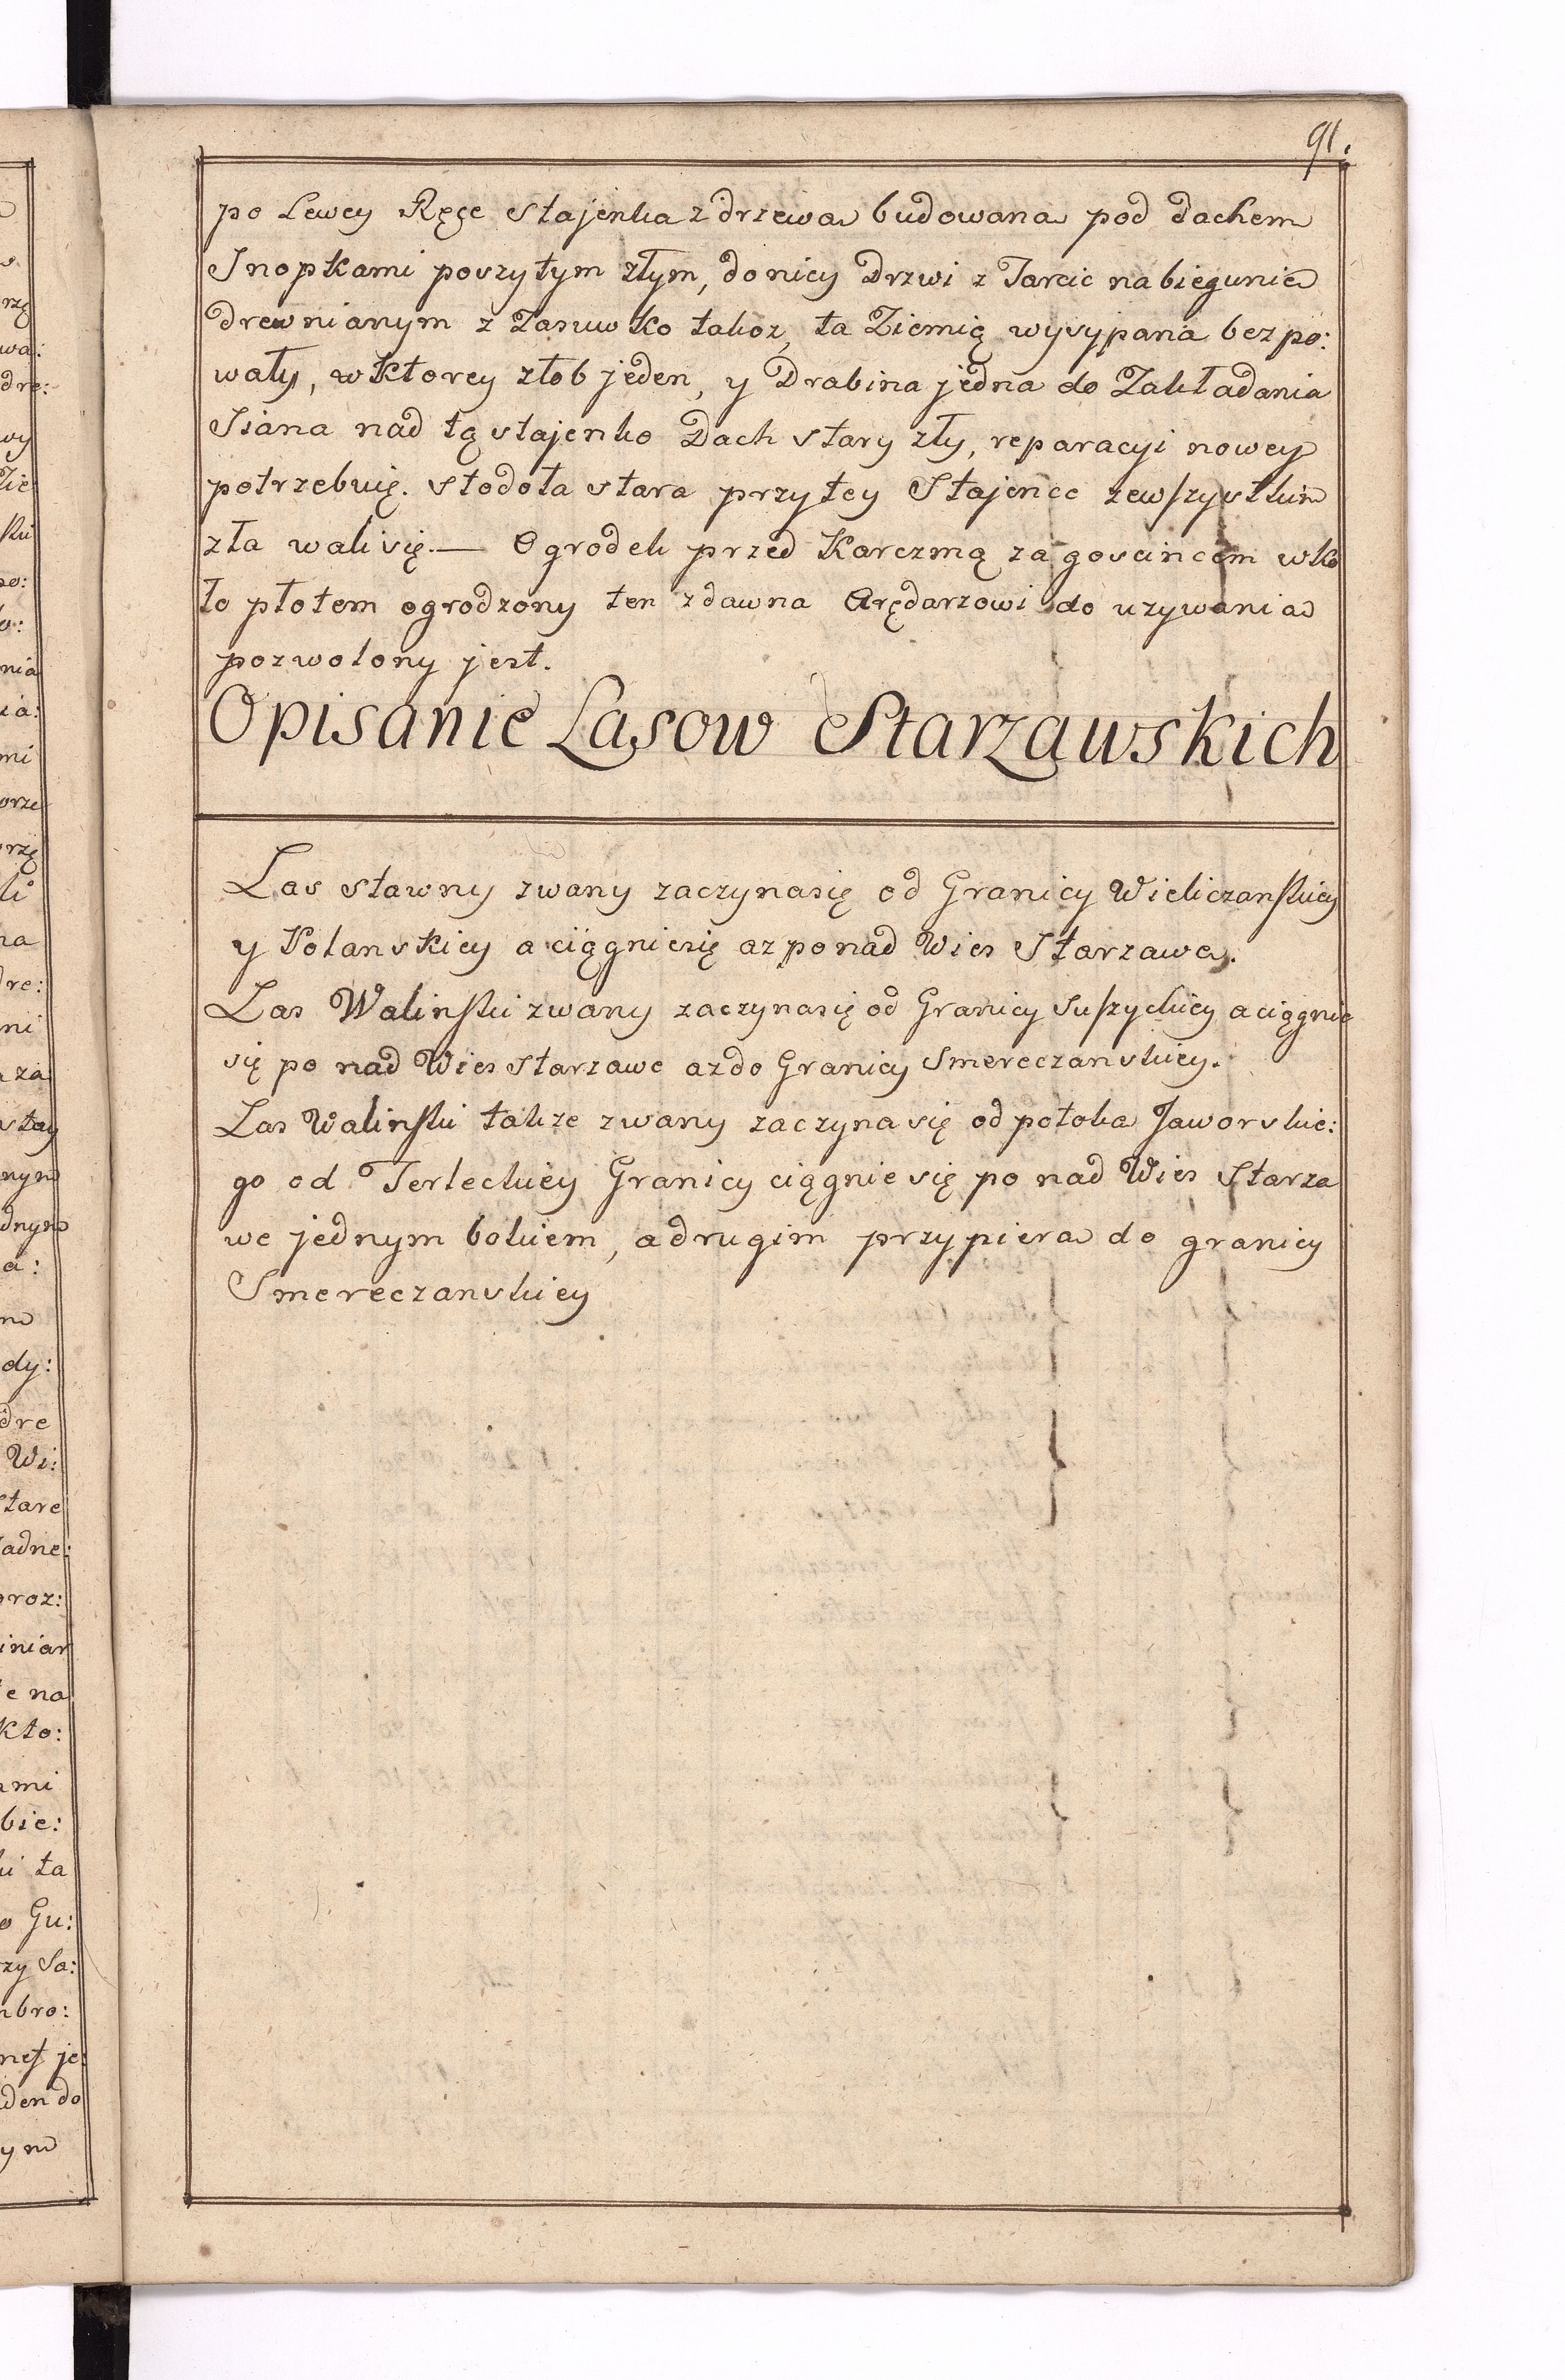 91.
po Lewey Ręce stajenka z drzewa budowana pod dachem
Snopkami poszytym złym, do nicy Drzwi z Tarcic na biegunie
drewnianym z Zasuwko takoz, ta Ziemią wysypana bez po:
wały, w ktorey złob jeden, y Drabina jedna do Zakładania
Siana nad tą stajenko Dach stary zły, reparacyi nowey
potrzebuię. stodoła stara przy tey Stajence ze wszystkim
zła wali się. — Ogrodek przed Karczmą za goscincem wko
ło płotem ogrodzony ten zdawna Arędarzowi do uzywania
pozwolony jest.
Opisanie Lasow Starzawskich
Las sławny zwany zaczyna się od Granicy Wieliczanskiey
y Polanskiey a ciągnie się az ponad Wies Starzawe.
Las Walinski zwany zaczyna się od Granicy Suszyckiey a ciągnie
się po nad Wies Starzawe az do Granicy Smereczanskiey.
Las Walinski takze zwany zaczyna się od potoka Jaworskie:
go od Terleckiey Granicy ciągnie się po nad Wies Starza
we jednym bokiem, a drugim przypiera do granicy
Smereczanskiey